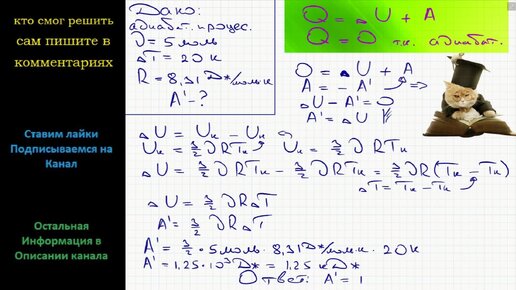 кто смог решить
сам пишите в
комментариях
Ставим лайки
Подписываемся на
Канал
Остальная
Информация в
Описании канала
Дано:
адиабат. процес.
ν = 5 моль
ΔT = 20 К
R = 8,31 Дж/моль·К
A' - ?
Q = ΔU + A
Q = 0 т.к. адиабат.
0 = ΔU + A
A = - A' =>
ΔU - A' = 0
A' = ΔU
ΔU = Uк - Uн
Uк = 3/2 νRTк Uн = 3/2 νRTн
ΔU = 3/2 νRTк - 3/2 νRTн = 3/2 νR(Tк - Tн)
ΔT = Tк - Tн
ΔU = 3/2 νRΔT
A' = 3/2 νRΔT
A' = 3/2 · 5 моль · 8,31 Дж/моль·К · 20 К
A' = 1,25 · 10³ Дж = 1,25 кДж
Ответ: A' = 1